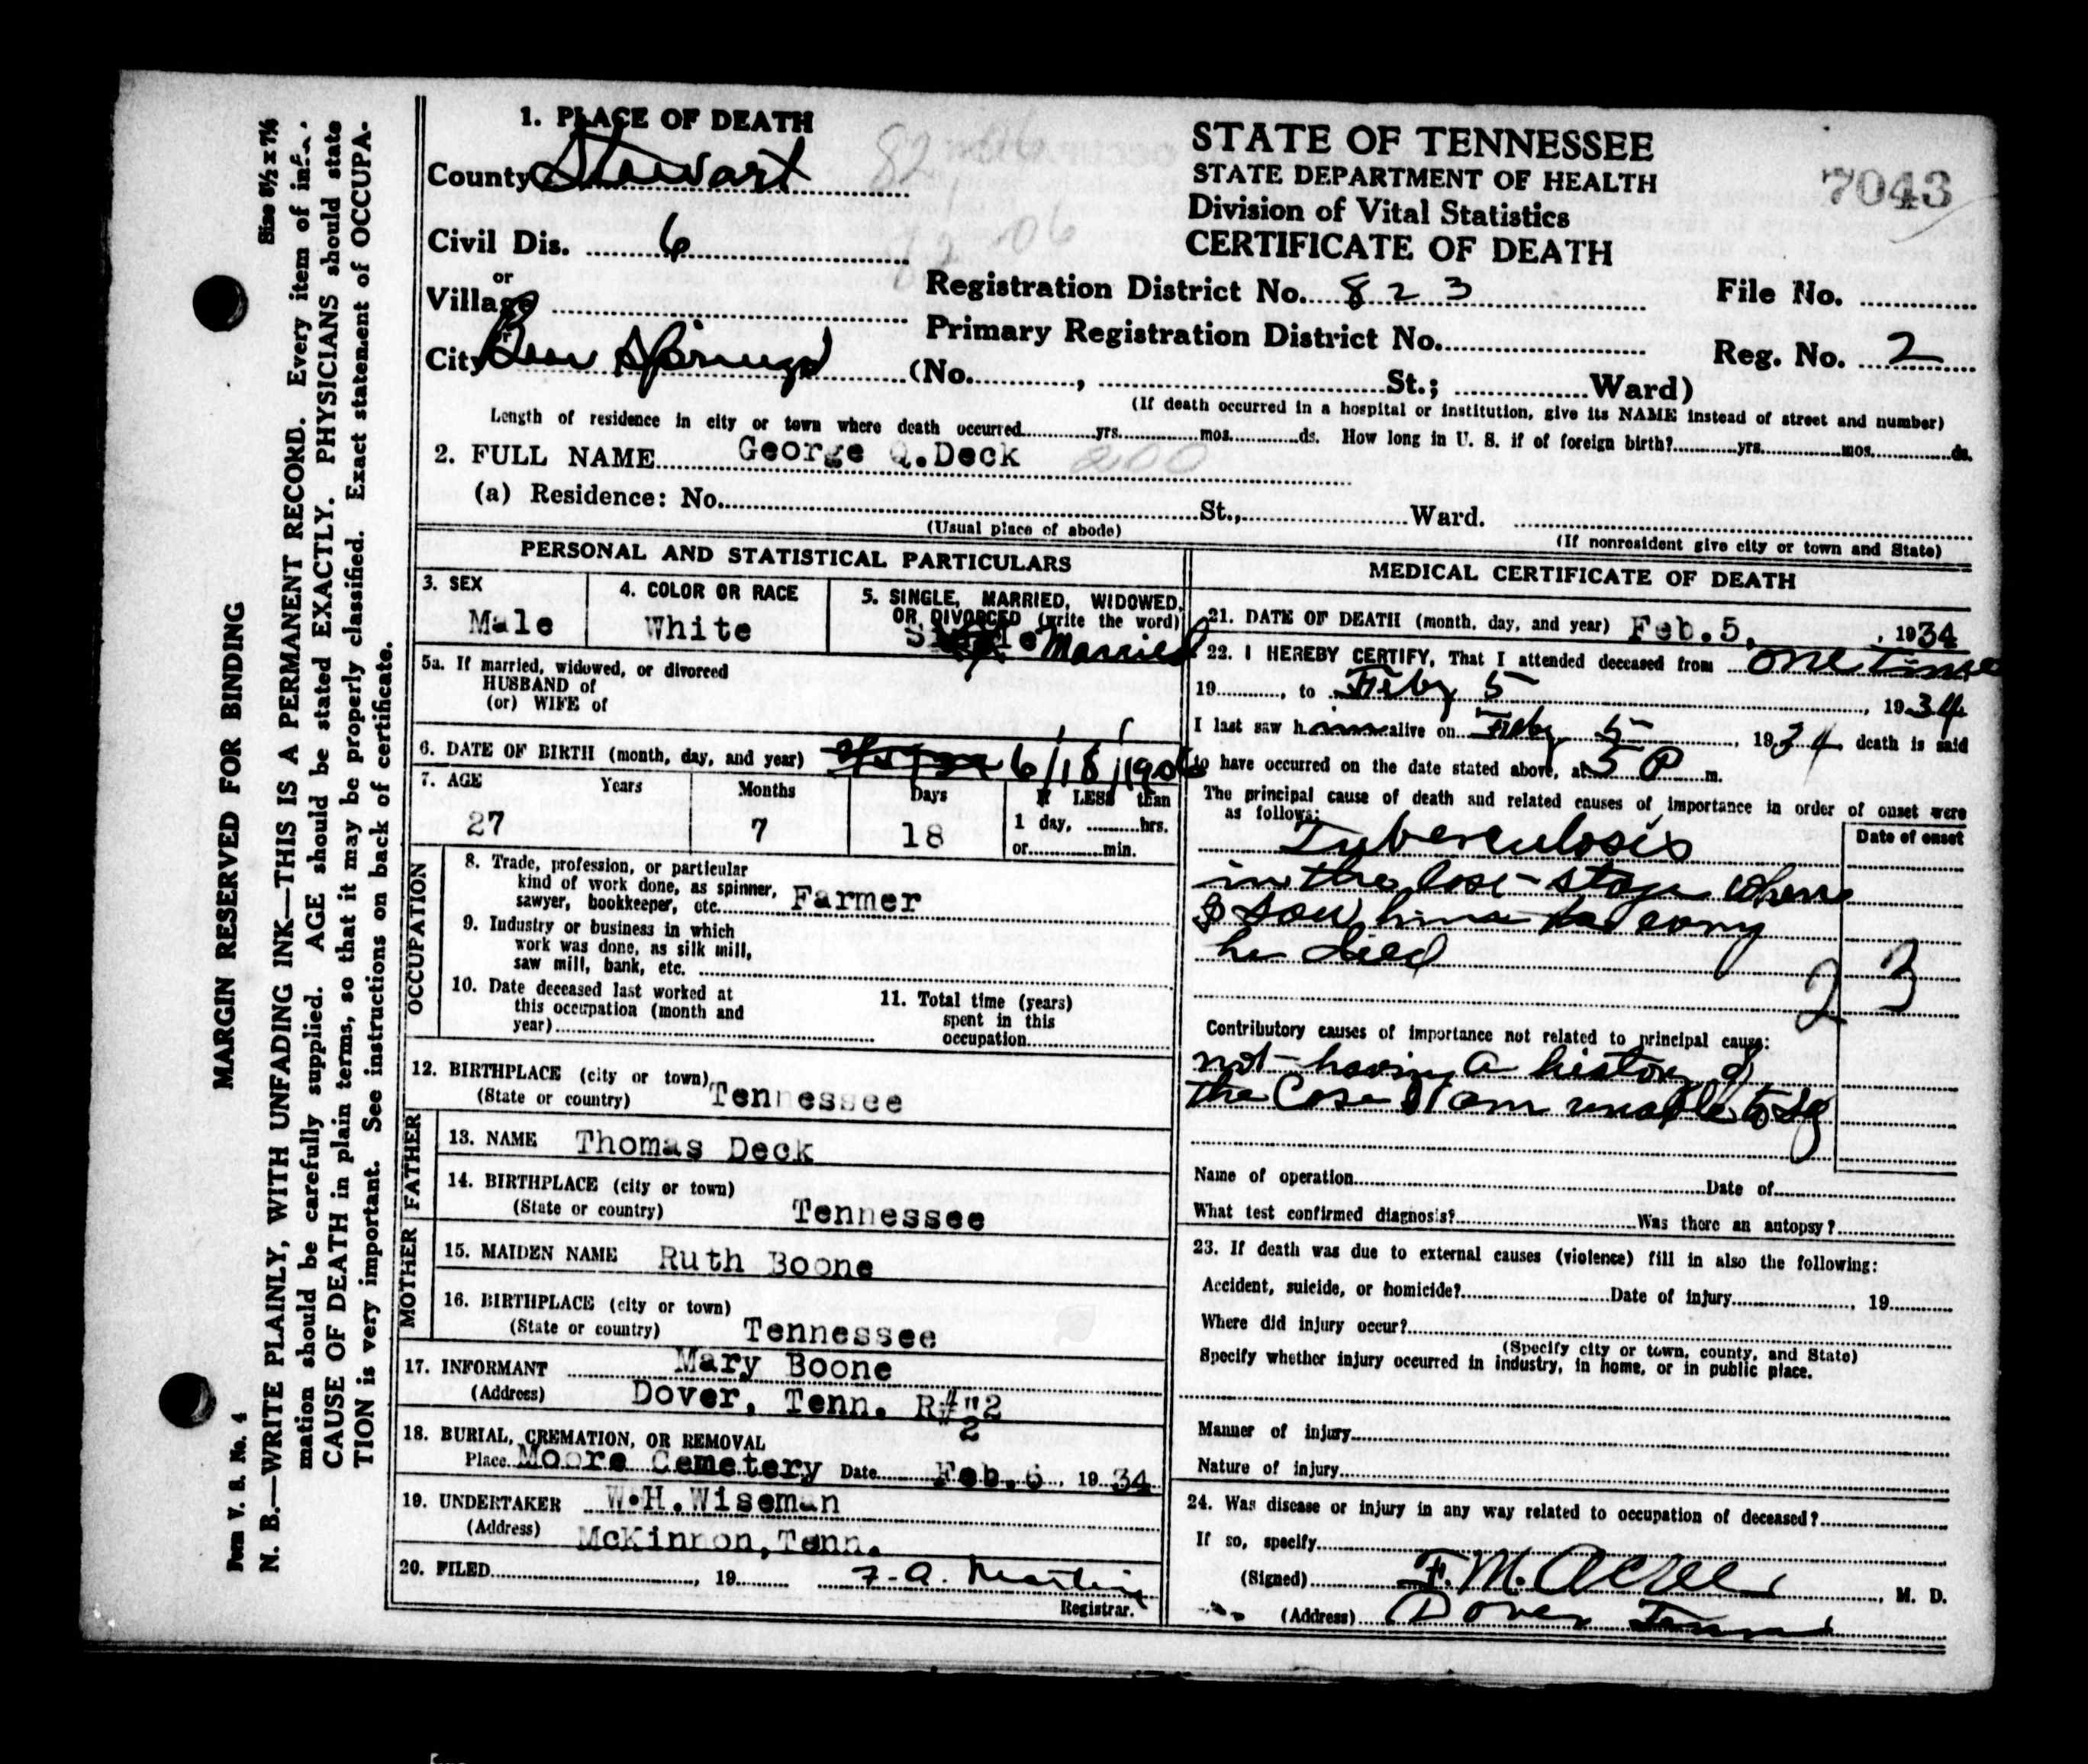 Size 8½ x 7½
MARGIN RESERVED FOR BINDING
N. B.—WRITE PLAINLY, WITH UNFADING INK—THIS IS A PERMANENT RECORD. Every item of infor-
mation should be carefully supplied. AGE should be stated EXACTLY. PHYSICIANS should state
CAUSE OF DEATH in plain terms, so that it may be properly classified. Exact statement of OCCUPA-
TION is very important. See instructions on back of certificate.
Form V. S. No. 4
1. PLACE OF DEATH
County Stewart
82
Civil Dis. 6
06
or
Village
City Bear Springs
(No. , St.; Ward)
STATE OF TENNESSEE
STATE DEPARTMENT OF HEALTH
Division of Vital Statistics
CERTIFICATE OF DEATH
7043
Registration District No. 823
File No.
Primary Registration District No.
Reg. No. 2
(If death occurred in a hospital or institution, give its NAME instead of street and number)
Length of residence in city or town where death occurred yrs. mos. ds. How long in U. S. if of foreign birth? yrs. mos. ds.
2. FULL NAME George Q. Deck 200
(a) Residence: No. St., Ward.
(Usual place of abode)
(If nonresident give city or town and State)
PERSONAL AND STATISTICAL PARTICULARS
3. SEX
Male
4. COLOR OR RACE
White
5. SINGLE, MARRIED, WIDOWED,
OR DIVORCED (write the word)
Single Married
5a. If married, widowed, or divorced
HUSBAND of
(or) WIFE of
6. DATE OF BIRTH (month, day, and year) 6/18/1906
7. AGE Years Months Days If LESS than
27 7 18 1 day, hrs.
or min.
OCCUPATION
8. Trade, profession, or particular
kind of work done, as spinner,
sawyer, bookkeeper, etc. Farmer
9. Industry or business in which
work was done, as silk mill,
saw mill, bank, etc.
10. Date deceased last worked at
this occupation (month and
year)
11. Total time (years)
spent in this
occupation
12. BIRTHPLACE (city or town)
(State or country) Tennessee
FATHER
13. NAME Thomas Deck
14. BIRTHPLACE (city or town)
(State or country) Tennessee
MOTHER
15. MAIDEN NAME Ruth Boone
16. BIRTHPLACE (city or town)
(State or country) Tennessee
17. INFORMANT Mary Boone
(Address) Dover, Tenn. R#"2
2
18. BURIAL, CREMATION, OR REMOVAL
Place Moore Cemetery Date Feb. 6, 1934
19. UNDERTAKER W.H. Wiseman
(Address) McKinnon, Tenn.
20. FILED , 19 F. A. Martin
Registrar.
MEDICAL CERTIFICATE OF DEATH
21. DATE OF DEATH (month, day, and year) Feb. 5, , 1934
22. I HEREBY CERTIFY, That I attended deceased from one time
19 , to Feby 5 , 1934
I last saw him alive on Feby 5 , 1934, death is said
to have occurred on the date stated above, at 5 P m.
The principal cause of death and related causes of importance in order of onset were
as follows:
Date of onset
Tuberculosis
in the last stage when
I saw him
he died
23
Contributory causes of importance not related to principal cause:
not having a history of
the Case I am unable to say
Name of operation Date of
What test confirmed diagnosis? Was there an autopsy?
23. If death was due to external causes (violence) fill in also the following:
Accident, suicide, or homicide? Date of injury , 19
Where did injury occur?
(Specify city or town, county, and State)
Specify whether injury occurred in industry, in home, or in public place.
Manner of injury
Nature of injury
24. Was disease or injury in any way related to occupation of deceased?
If so, specify
(Signed) F. M. Acree , M. D.
(Address) Dover Tenn